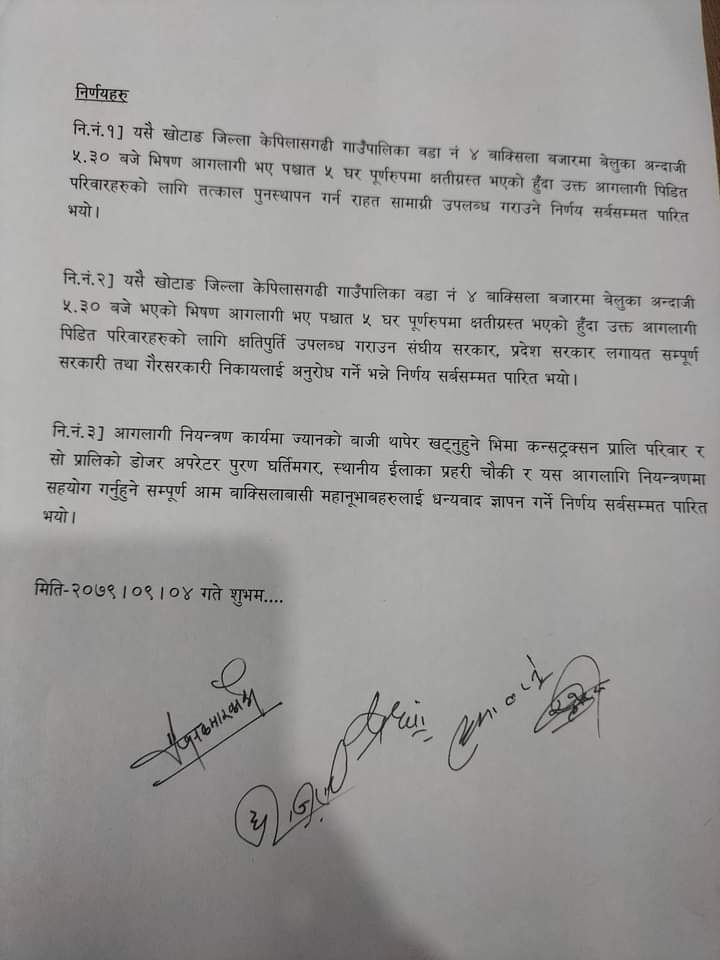 निर्णयहरु
नि.नं.१] यसै खोटाङ जिल्ला केपिलासगढी गाउँपालिका वडा नं ४ बाक्सिला बजारमा बेलुका अन्दाजी
५.३० बजे भिषण आगलागी भए पश्चात ५ घर पूर्णरुपमा क्षतीग्रस्त भएको हुँदा उक्त आगलागी पिडित
परिवारहरुको लागि तत्काल पुनस्थापन गर्न राहत सामाग्री उपलब्ध गराउने निर्णय सर्बसम्मत पारित
भयो।
नि.नं.२] यसै खोटाङ जिल्ला केपिलासगढी गाउँपालिका वडा नं ४ बाक्सिला बजारमा बेलुका अन्दाजी
५.३० बजे भएको भिषण आगलागी भए पश्चात ५ घर पूर्णरुपमा क्षतीग्रस्त भएको हुँदा उक्त आगलागी
पिडित परिवारहरुको लागि क्षतिपुर्ति उपलब्ध गराउन संघीय सरकार, प्रदेश सरकार लगायत सम्पूर्ण
सरकारी तथा गैरसरकारी निकायलाई अनुरोध गर्ने भन्ने निर्णय सर्बसम्मत पारित भयो।
नि.नं.३] आगलागी नियन्त्रण कार्यमा ज्यानको बाजी थापेर खट्नुहुने भिमा कन्सट्रक्सन प्रालि परिवार र
सो प्रालिको डोजर अपरेटर पुरण घर्तिमगर, स्थानीय ईलाका प्रहरी चौकी र यस आगलागि नियन्त्रणमा
सहयोग गर्नुहुने सम्पूर्ण आम वाक्सिलाबासी महानूभाबहरुलाई धन्यवाद ज्ञापन गर्ने निर्णय सर्बसम्मत पारित
भयो।
मिति-२०७९।०९।०४ गते शुभम....